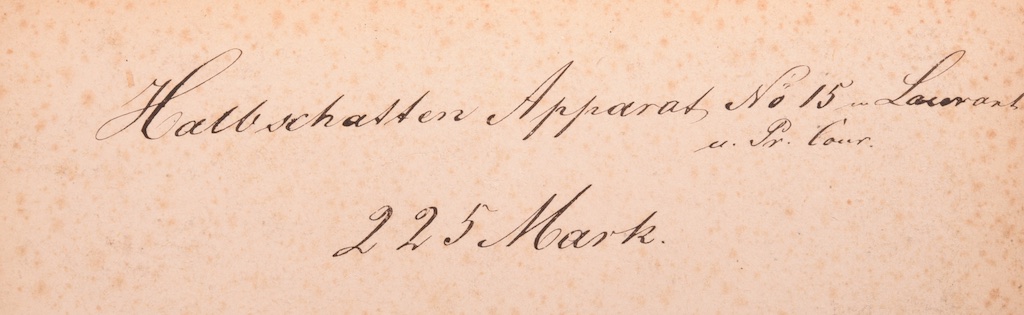 Halbschatten Apparat No 15 n Laurant
u. Pr. Cour.
225 Mark.